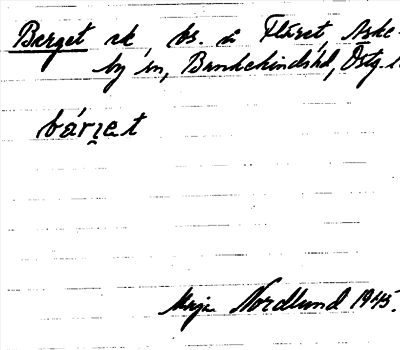 Berget sk, bs. å Flåret, Aske-
by sn, Bankekinds hd, Östg.l
bárget
Maja Nordlund 1945.